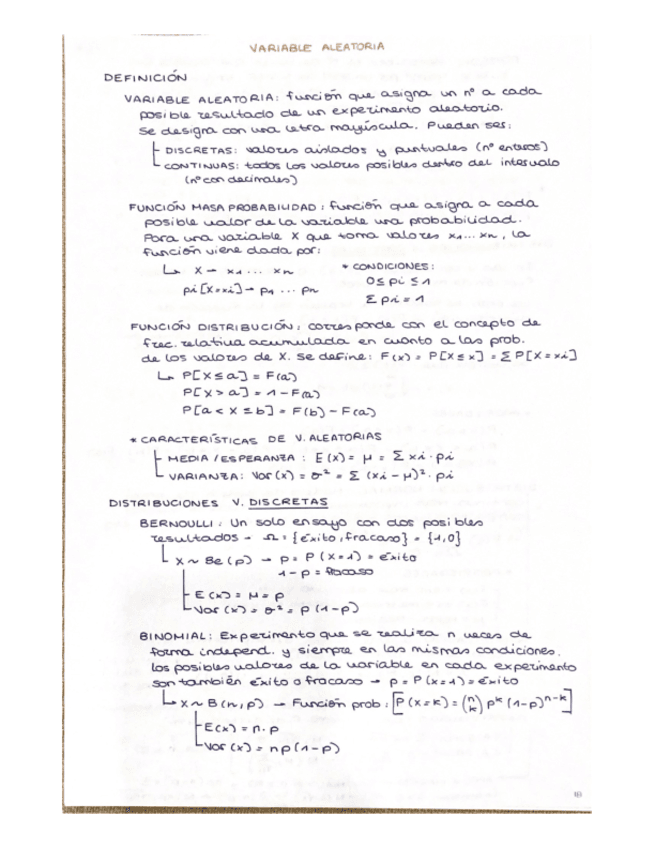 VARIABLE ALEATORIA
DEFINICIÓN
VARIABLE ALEATORIA: función que asigna un nº a cada
posible resultado de un experimento aleatorio.
Se designa con una letra mayúscula. Pueden ser:
DISCRETAS: valores aislados y puntuales (nº enteros)
CONTINUAS: todos los valores posibles dentro del intervalo
(nº con decimales)
FUNCIÓN MASA PROBABILIDAD: función que asigna a cada
posible valor de la variable una probabilidad.
Para una variable X que toma valores x1...xn, la
función viene dada por:
↳ X → x1 ... xn * CONDICIONES:
pi[X=xi] → p1 ... pn 0≤pi≤1
Σpi=1
FUNCIÓN DISTRIBUCIÓN: corresponde con el concepto de
frec. relativa acumulada en cuanto a las prob.
de los valores de X. Se define: F(x) = P[X≤x] = ΣP[X=xi]
↳ P[X≤a] = F(a)
P[X>a] = 1-F(a)
P[a<X≤b] = F(b)-F(a)
* CARACTERÍSTICAS DE V. ALEATORIAS
MEDIA/ESPERANZA: E(x) = μ = Σxi·pi
VARIANZA: Var(x) = σ² = Σ(xi-μ)²·pi
DISTRIBUCIONES V. DISCRETAS
BERNOULLI: Un solo ensayo con dos posibles
resultados → Ω = {éxito, fracaso} = {1,0}
X ~ Be(p) → p = P(X=1) = éxito
1-p = fracaso
E(x) = μ = p
Var(x) = σ² = p(1-p)
BINOMIAL: Experimento que se realiza n veces de
forma independ. y siempre en las mismas condiciones.
Los posibles valores de la variable en cada experimento
son también éxito o fracaso → p = P(x=1) = éxito
↳ X ~ B(n,p) → Función prob: [P(x=k) = (n k) p^k (1-p)^n-k]
E(x) = n·p
Var(x) = np(1-p)